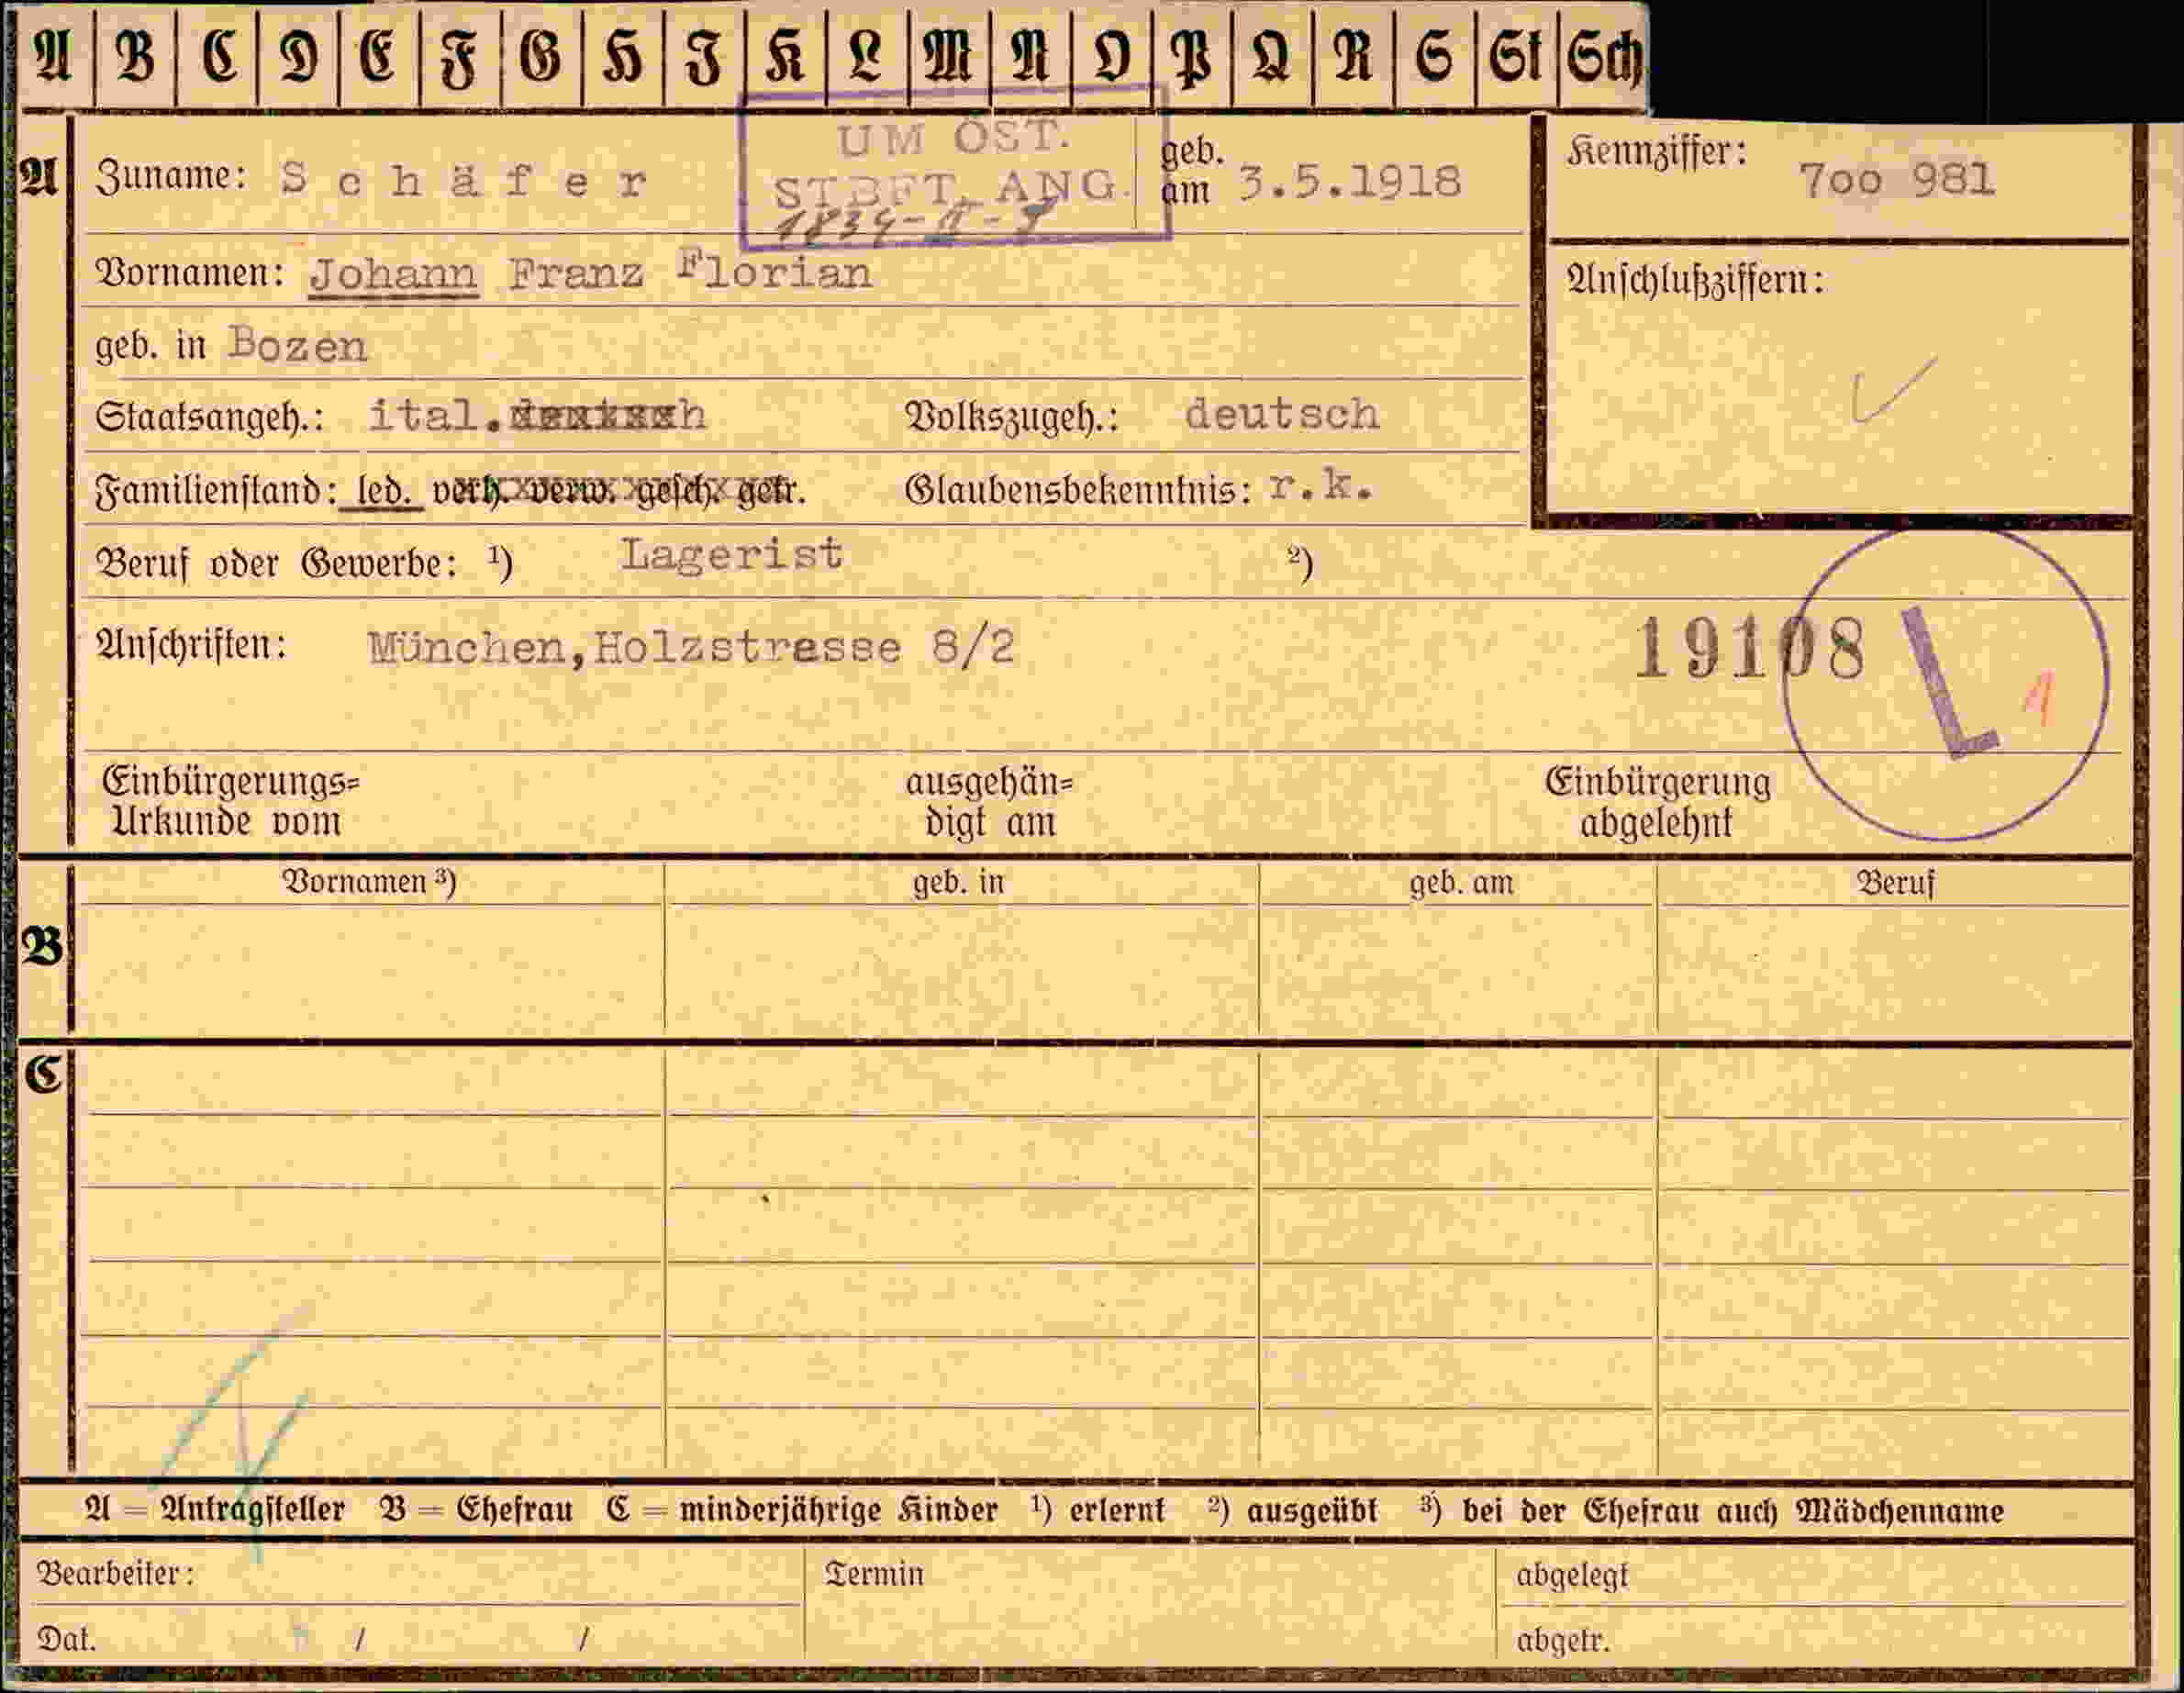 A B C D E F G H I K L M N O P Q R S St Sch
A Zuname: Schäfer geb. am 3.5.1918 Kennziffer: 7oo 981
UM ÖST.
STBFT. ANG.
Vornamen: Johann Franz Florian
Anschlußziffern:
geb. in Bozen
Staatsangeh.: ital. Volkszugeh.: deutsch
Familienstand: led. verh. verw. gesch. getr. Glaubensbekenntnis: r.k.
Beruf oder Gewerbe: ¹) Lagerist ²)
Anschriften: München,Holzstrasse 8/2 19108 L 1
Einbürgerungs=
Urkunde vom
ausgehän=
digt am
Einbürgerung
abgelehnt
Vornamen ³) geb. in geb. am Beruf
B
C
A = Antragsteller B = Ehefrau C = minderjährige Kinder ¹) erlernt ²) ausgeübt ³) bei der Ehefrau auch Mädchenname
Bearbeiter: Termin abgelegt
Dat. / / abgetr.